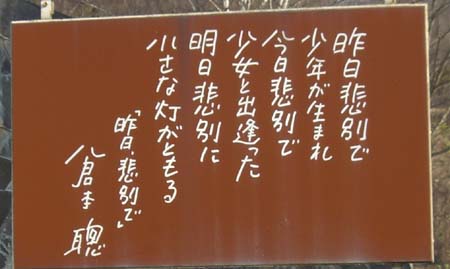 昨日悲別で
少年が生まれ
今日悲別で
少女と出逢った
明日悲別に
小さな灯がともる
「昨日、悲別で」
倉本 聰